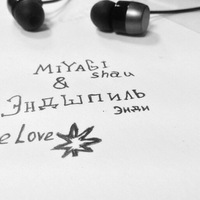 MiYAGi
shau
&
Эндшпиль
энди
e Love